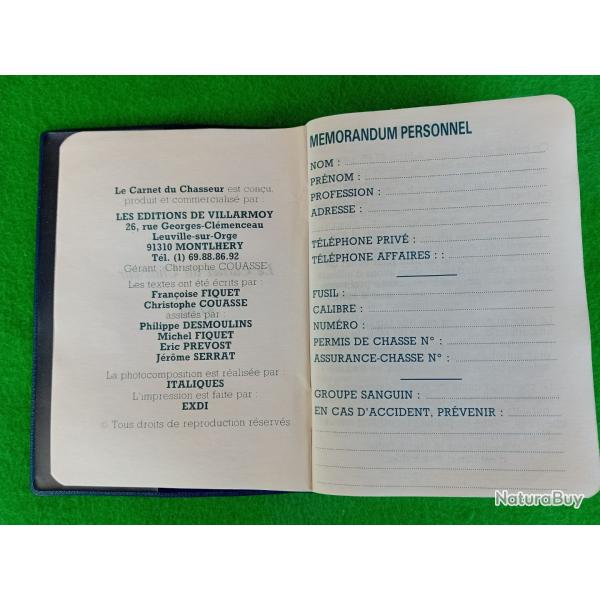 Le Carnet du Chasseur est conçu,
produit et commercialisé par :
LES EDITIONS DE VILLARMOY
26, rue Georges-Clémenceau
Leuville-sur-Orge
91310 MONTLHERY
Tél. (1) 69.88.86.92
Gérant : Christophe COUASSE
Les textes ont été écrits par :
Françoise FIQUET
Christophe COUASSE
assistés par :
Philippe DESMOULINS
Michel FIQUET
Eric PREVOST
Jérôme SERRAT
La photocomposition est réalisée par :
ITALIQUES
L'impression est faite par :
EXDI
© Tous droits de reproduction réservés
MEMORANDUM PERSONNEL
NOM :
PRÉNOM :
PROFESSION :
ADRESSE :
TÉLÉPHONE PRIVÉ :
TÉLÉPHONE AFFAIRES : :
FUSIL :
CALIBRE :
NUMÉRO :
PERMIS DE CHASSE N° :
ASSURANCE-CHASSE N° :
GROUPE SANGUIN :
EN CAS D'ACCIDENT, PRÉVENIR :
NaturaBuy